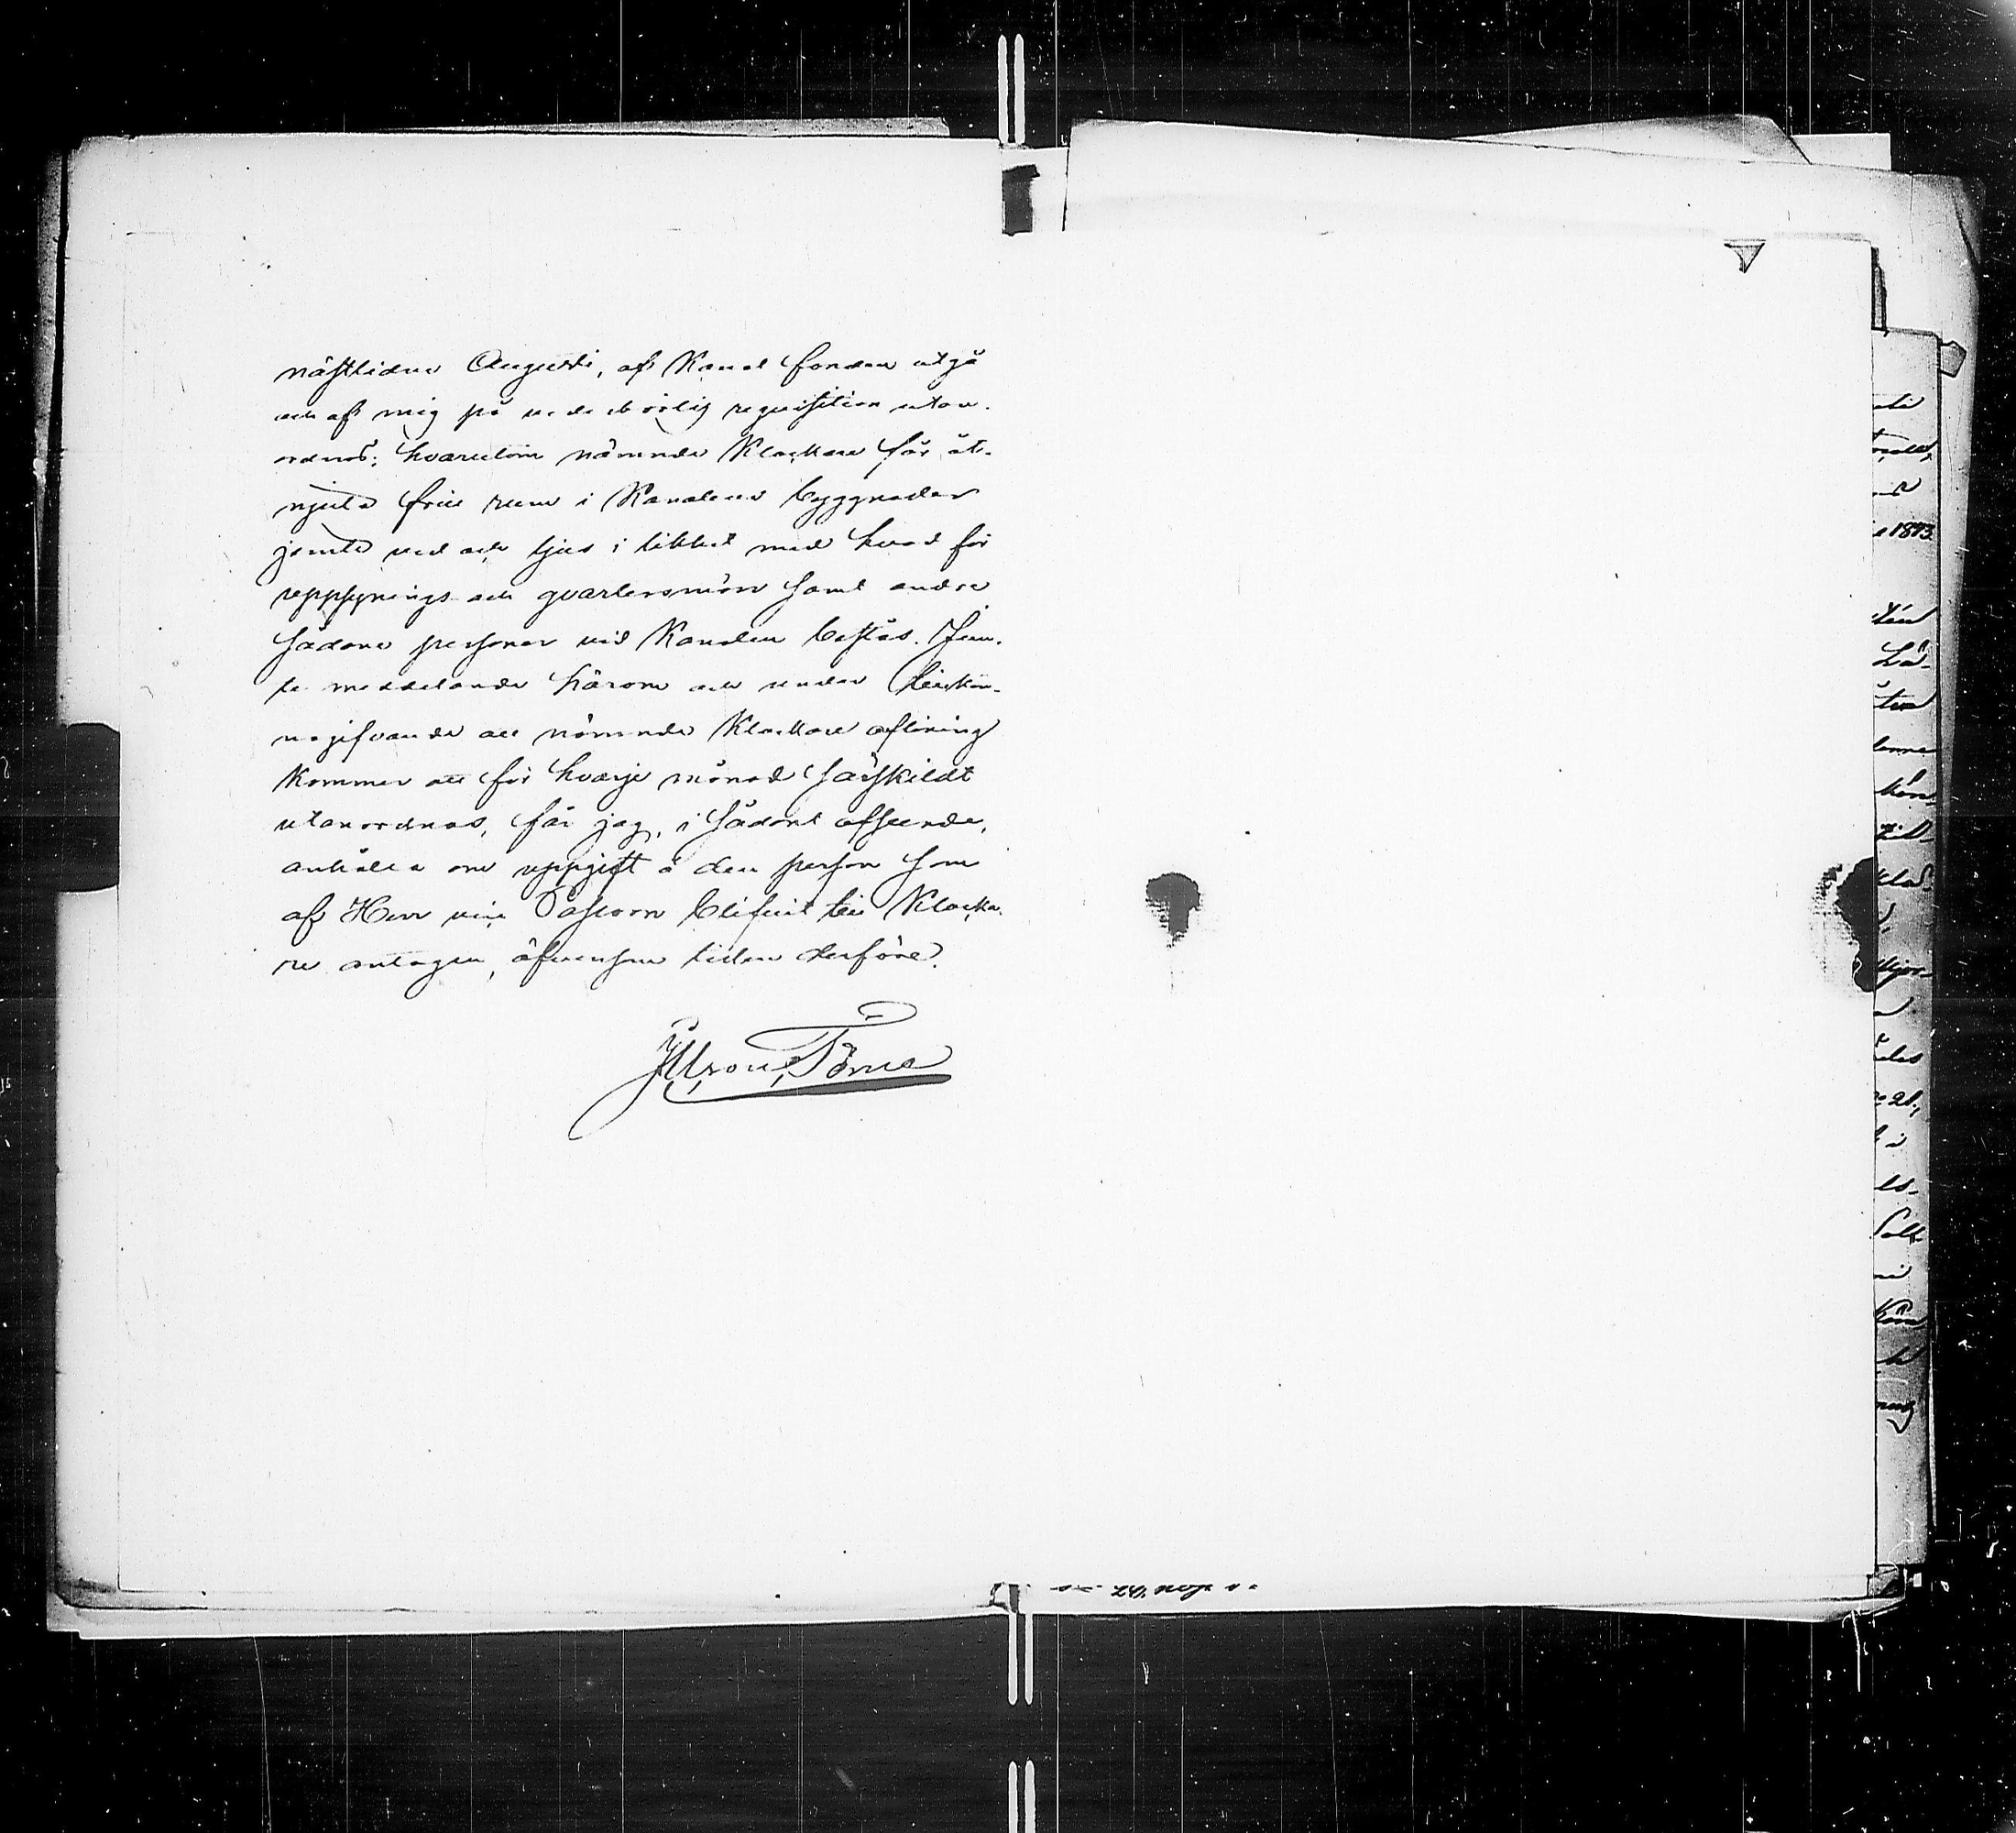 nästlidne Augusti, af Kanal fonden utgå
och af mig på vederbörlig requisition utan-
ordnas; hvarutom nämnde Klockare får åt-
njuta fria rum i Kanalens byggnader
jemte ved och ljus i likhet med hvad för
uppsynings och qvartersmän samt andre
sådane personer vid Kanalen bestås. Jem-
te meddelande härom och under tillkän-
nagifvande att nämnde Klockare aflöning
kommer att för hvarje månad särskildt
utanordnas, får jag, i sådant afseende,
anhålla om uppgift å den person som
af Herr vice Pastorn blifvit till Klocka-
re antagen, äfvensom tiden derföre.
Törne
1873